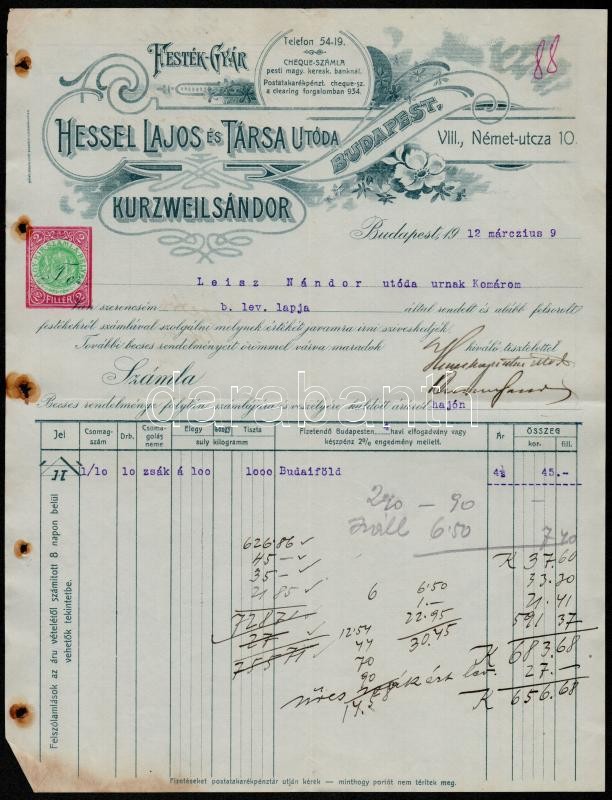 FESTÉK-GYÁR
Telefon 54-19.
CHEQUE-SZÁMLA
pesti magy. keresk. banknál.
Postatakarékpénzt. cheque-sz.
a clearing forgalomban 934.
88
HESSEL LAJOS ÉS TÁRSA UTÓDA
BUDAPEST,
VIII., Német-utcza 10.
KURZWEIL SÁNDOR
Budapest, 19 12 márczius 9
2 2
FILLÉR
Leisz Nándor utóda urnak Komárom
Van szerencsém b. lev. lapja által rendelt és alább felsorolt
festékekről számlával szolgálni melynek értékét javamra irni sziveskedjék.
További becses rendelményeit örömmel várva maradok kiváló tisztelettel
Számla
Becses rendelménye folytán számlájára és veszélyére küldött áruról hajón
darabanth.com
Jel Csomag-szám Drb. Csomagolás neme Elegy suly kilogramm Tiszta Fizetendő Budapesten, havi elfogadvány vagy készpénz 2% engedmény mellett. Ár ÖSSZEG kor. fill.
1/10 10 zsák á 100 1000 Budaiföld 4½ 45.-
240 - 90
6.50 7.40
626.86
45 -
35 -
21 85
728 71
27
755 71
6 6.50
1.-
22.95
30.45
12.54
44
70
90
K 37.60
33.20
21.41
591 37
K 683.68
27.-
K 656.68
Felszólamlások az áru vételétől számított 8 napon belül
vehetők tekintetbe.
Fizetéseket postatakarékpénztár utján kérek — minthogy portót nem téritek meg.